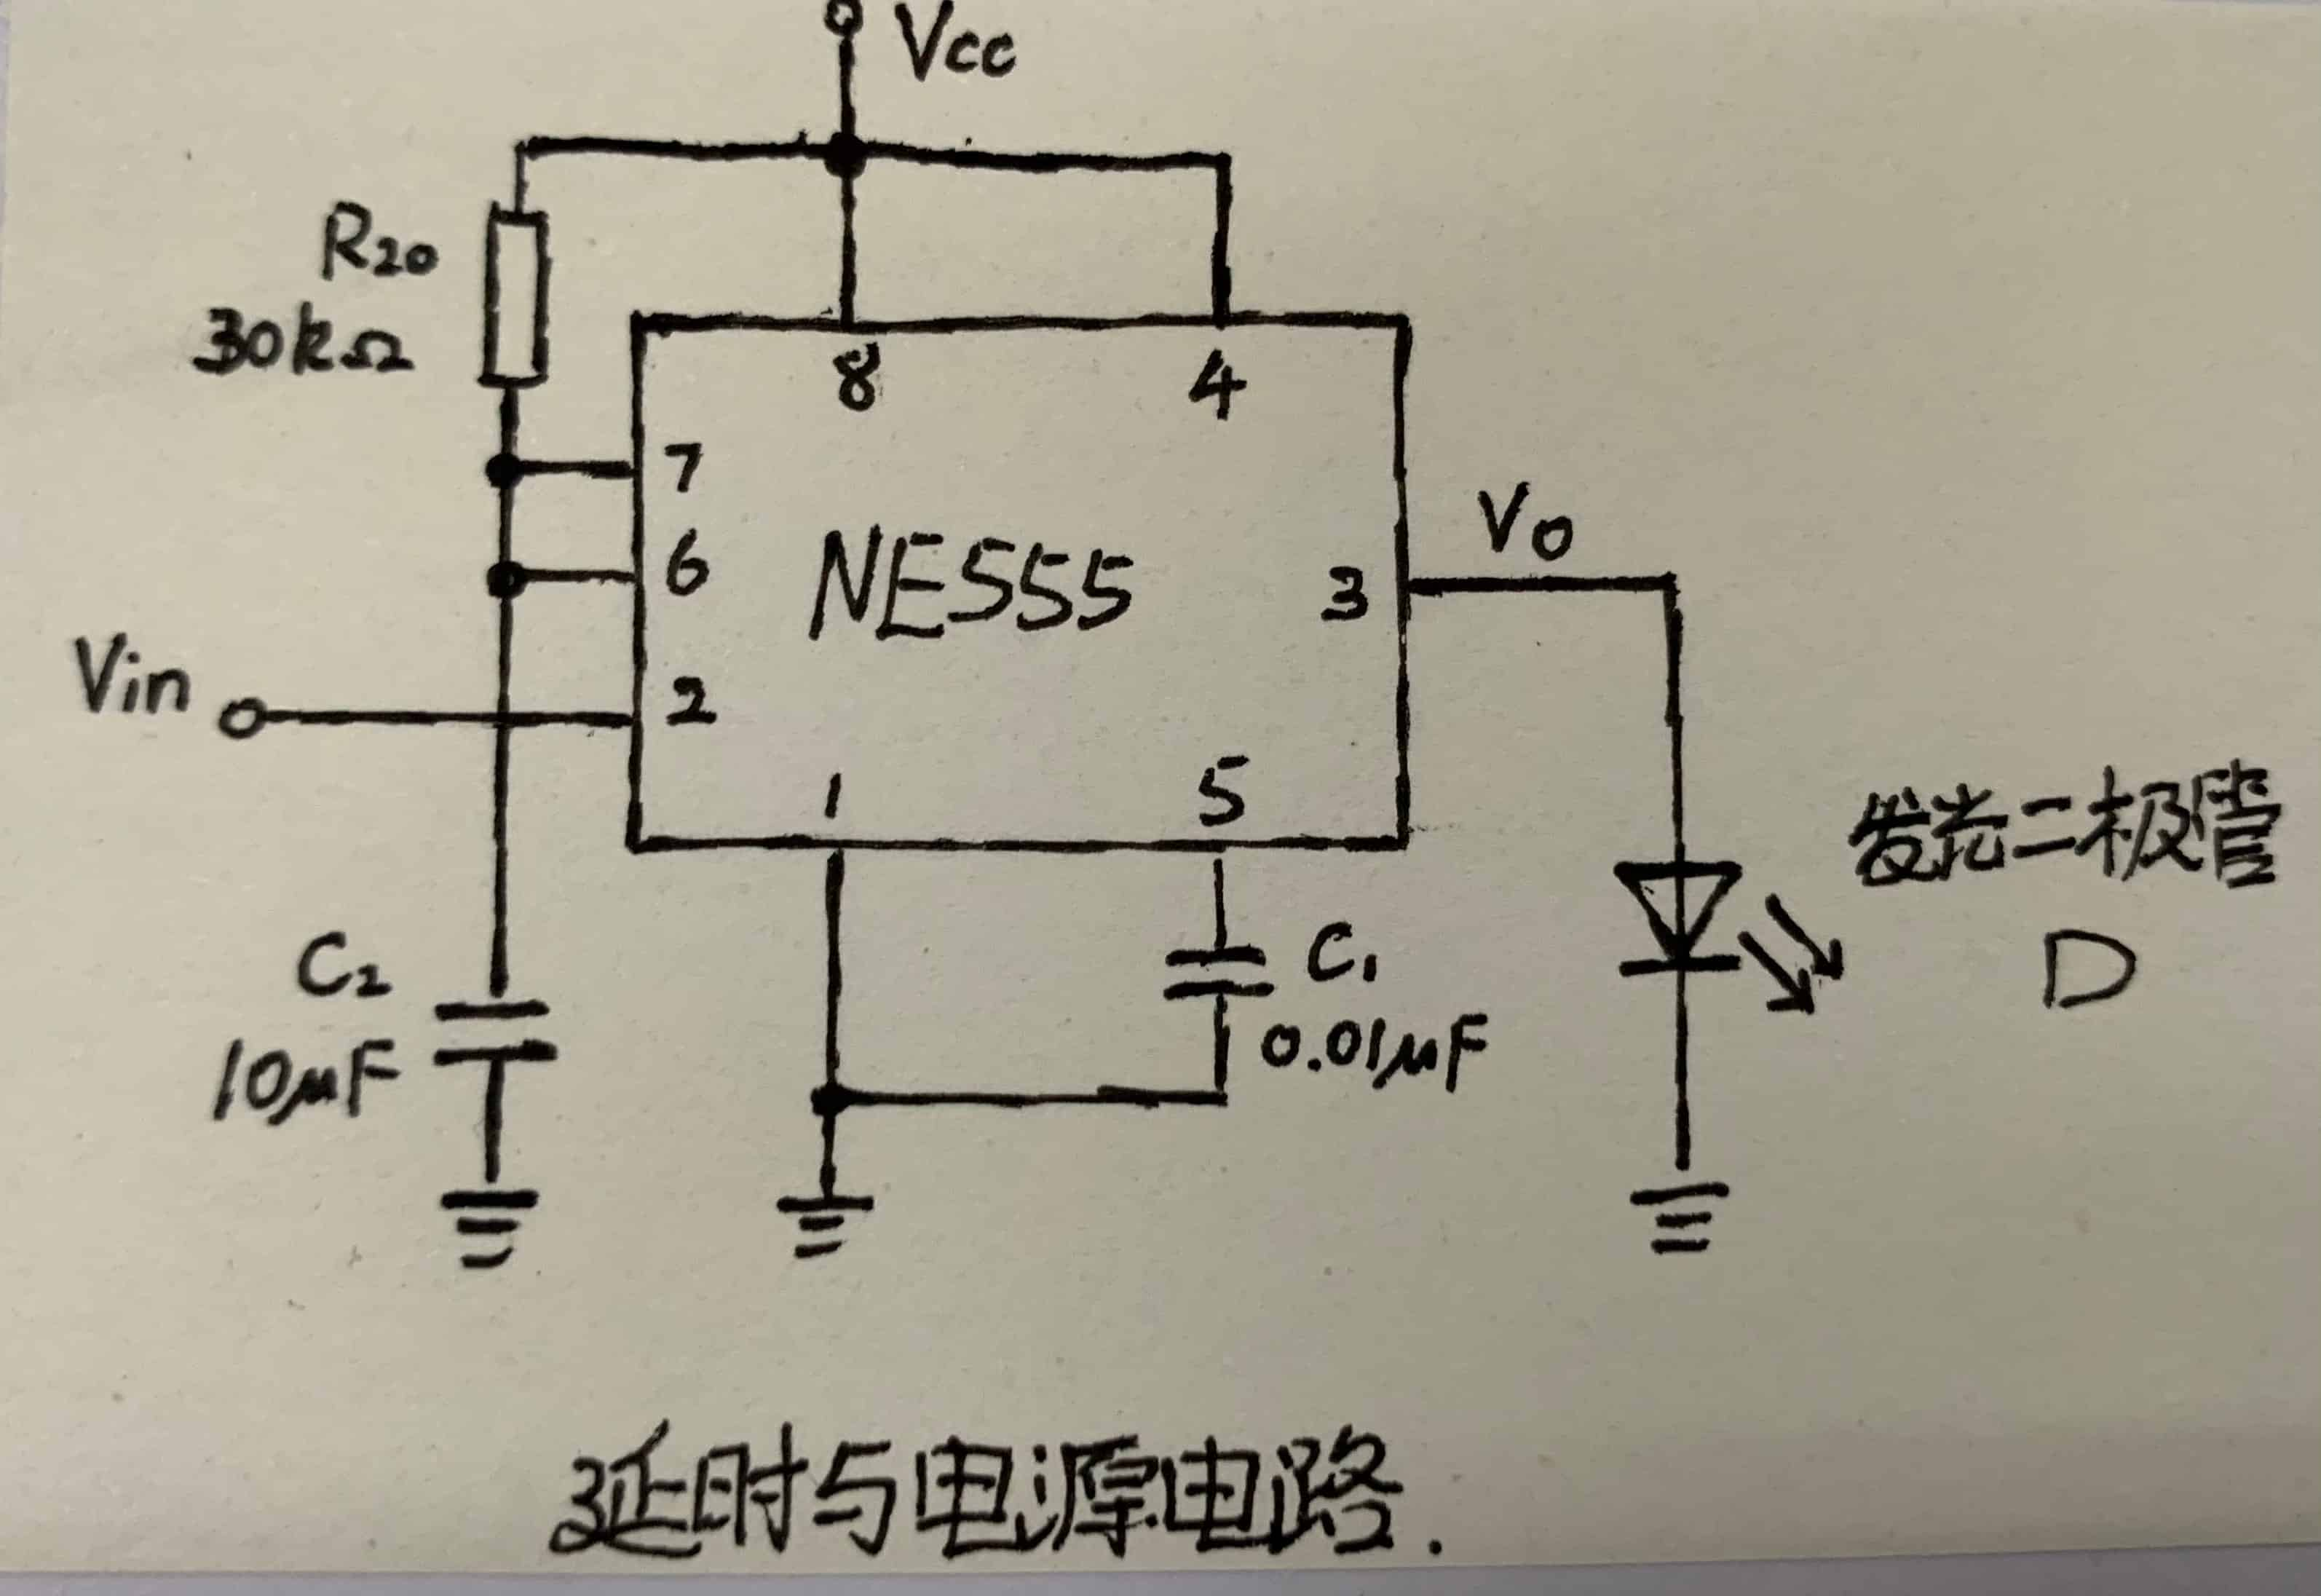 Vcc
R20
30kΩ
8
4
7
6
NE555
Vo
3
Vin
2
1
5
发光二极管
D
C2
10μF
C1
0.01μF
延时与电源电路.